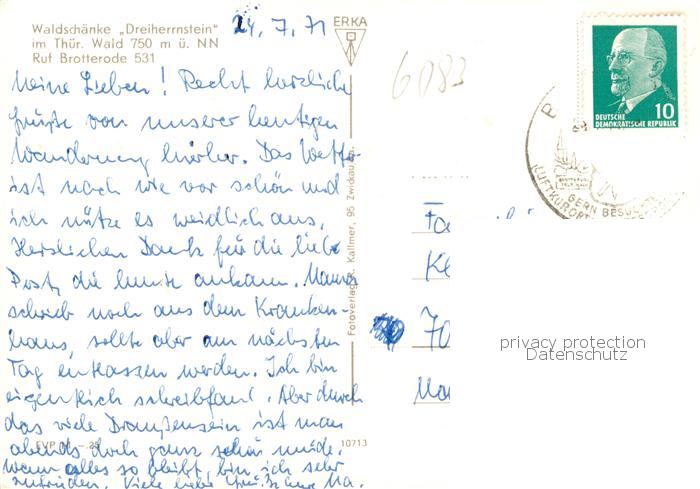 Waldschänke „Dreiherrnstein"
im Thür. Wald 750 m ü. NN
Ruf Brotterode 531
24.7.71
ERKA
6083
Meine Lieben! Recht herzliche
Grüße von unserer heutigen
Wanderung hierher. Das Wetter
ist nach wie vor schön und
ich nütze es weidlich aus.
Herzlichen Dank für die liebe
Post, die heute ankam. Mama
schrieb noch aus dem Kranken-
haus, sollte aber am nächsten
Tag entlassen werden. Ich bin
eigentlich schreibfaul. Aber durch
das viele Draußensein ist man
abends doch ganz schön müde.
Wenn alles so bleibt, bin ich sehr
zufrieden. Viele liebe Grüße Eure
EVP
10713
Fotoverlag R. Kallmer, 95 Zwickau
DEUTSCHE
DEMOKRATISCHE REPUBLIK
10
LUFTKURORT
GERN BESUCHTER
Fa
Ke
70
privacy protection
Datenschutz